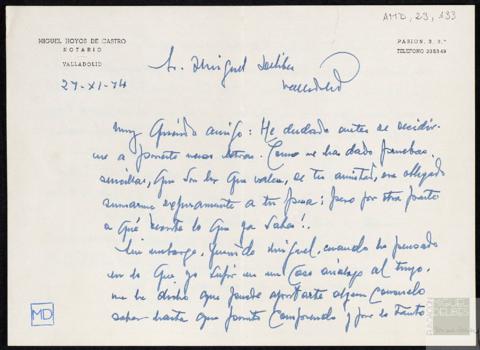 AMD, 23, 133
MIGUEL HOYOS DE CASTRO
NOTARIO
VALLADOLID
PASION, 3, 3.º
TELEFONO 225349
27-XI-74
Sr. Miguel Delibes
Valladolid
Muy querido amigo: He dudado antes de decidir-
me a ponerte unas letras. Como me has dado pruebas,
sencillas, que son las que valen, de tu amistad, me
sumarme a tu pena; pero por otra parte
a qué lo que ya sabes!.
Sin embargo, querido Miguel, cuando he pensado
en lo que yo sufrí en un caso análogo al tuyo,
me he dicho que puede aportarte algún consuelo
saber hasta que punto comprendo y por lo tanto
MD
FUNDACIÓN
MIGUEL
DELIBES